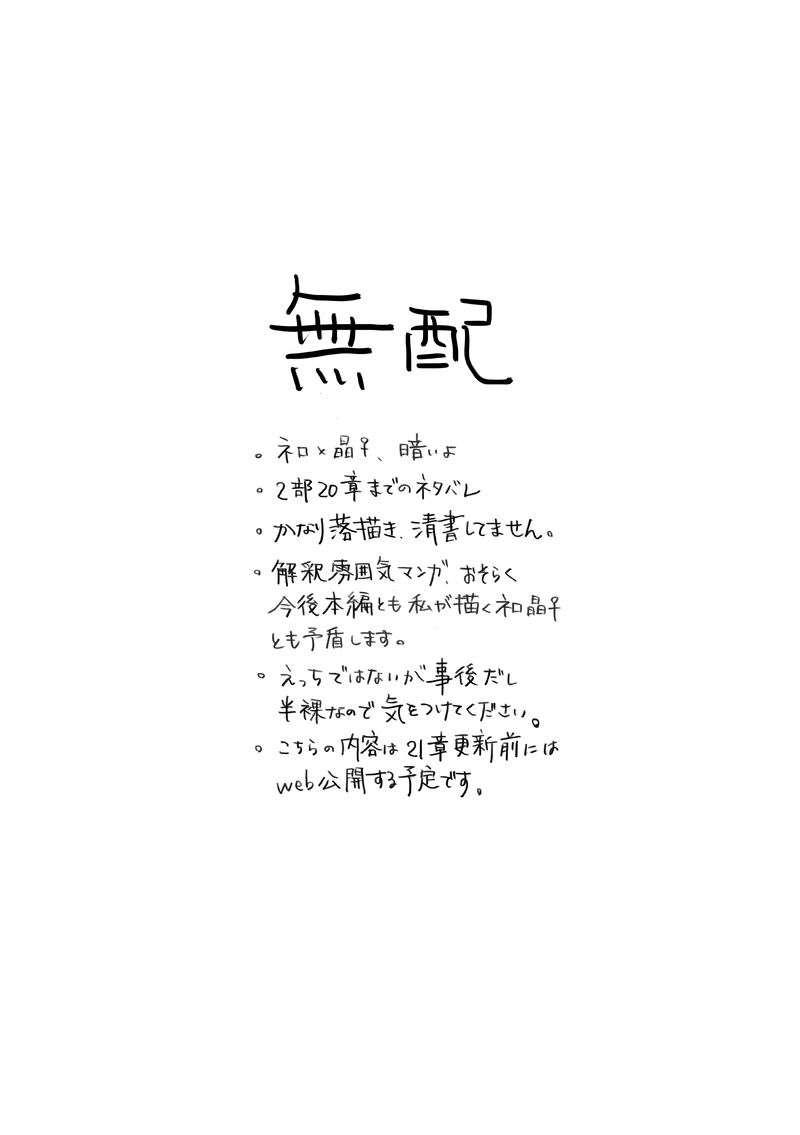 無配
。ネロ×晶♀、暗いよ
。2部20章までのネタバレ
。かなり落描き、清書してません。
。解釈雰囲気マンガ、おそらく
今後本編とも私が描くネロ晶♀
とも矛盾します。
。えっちではないが事後だし
半裸なので気をつけてください。
。こちらの内容は21章更新前には
web公開する予定です。